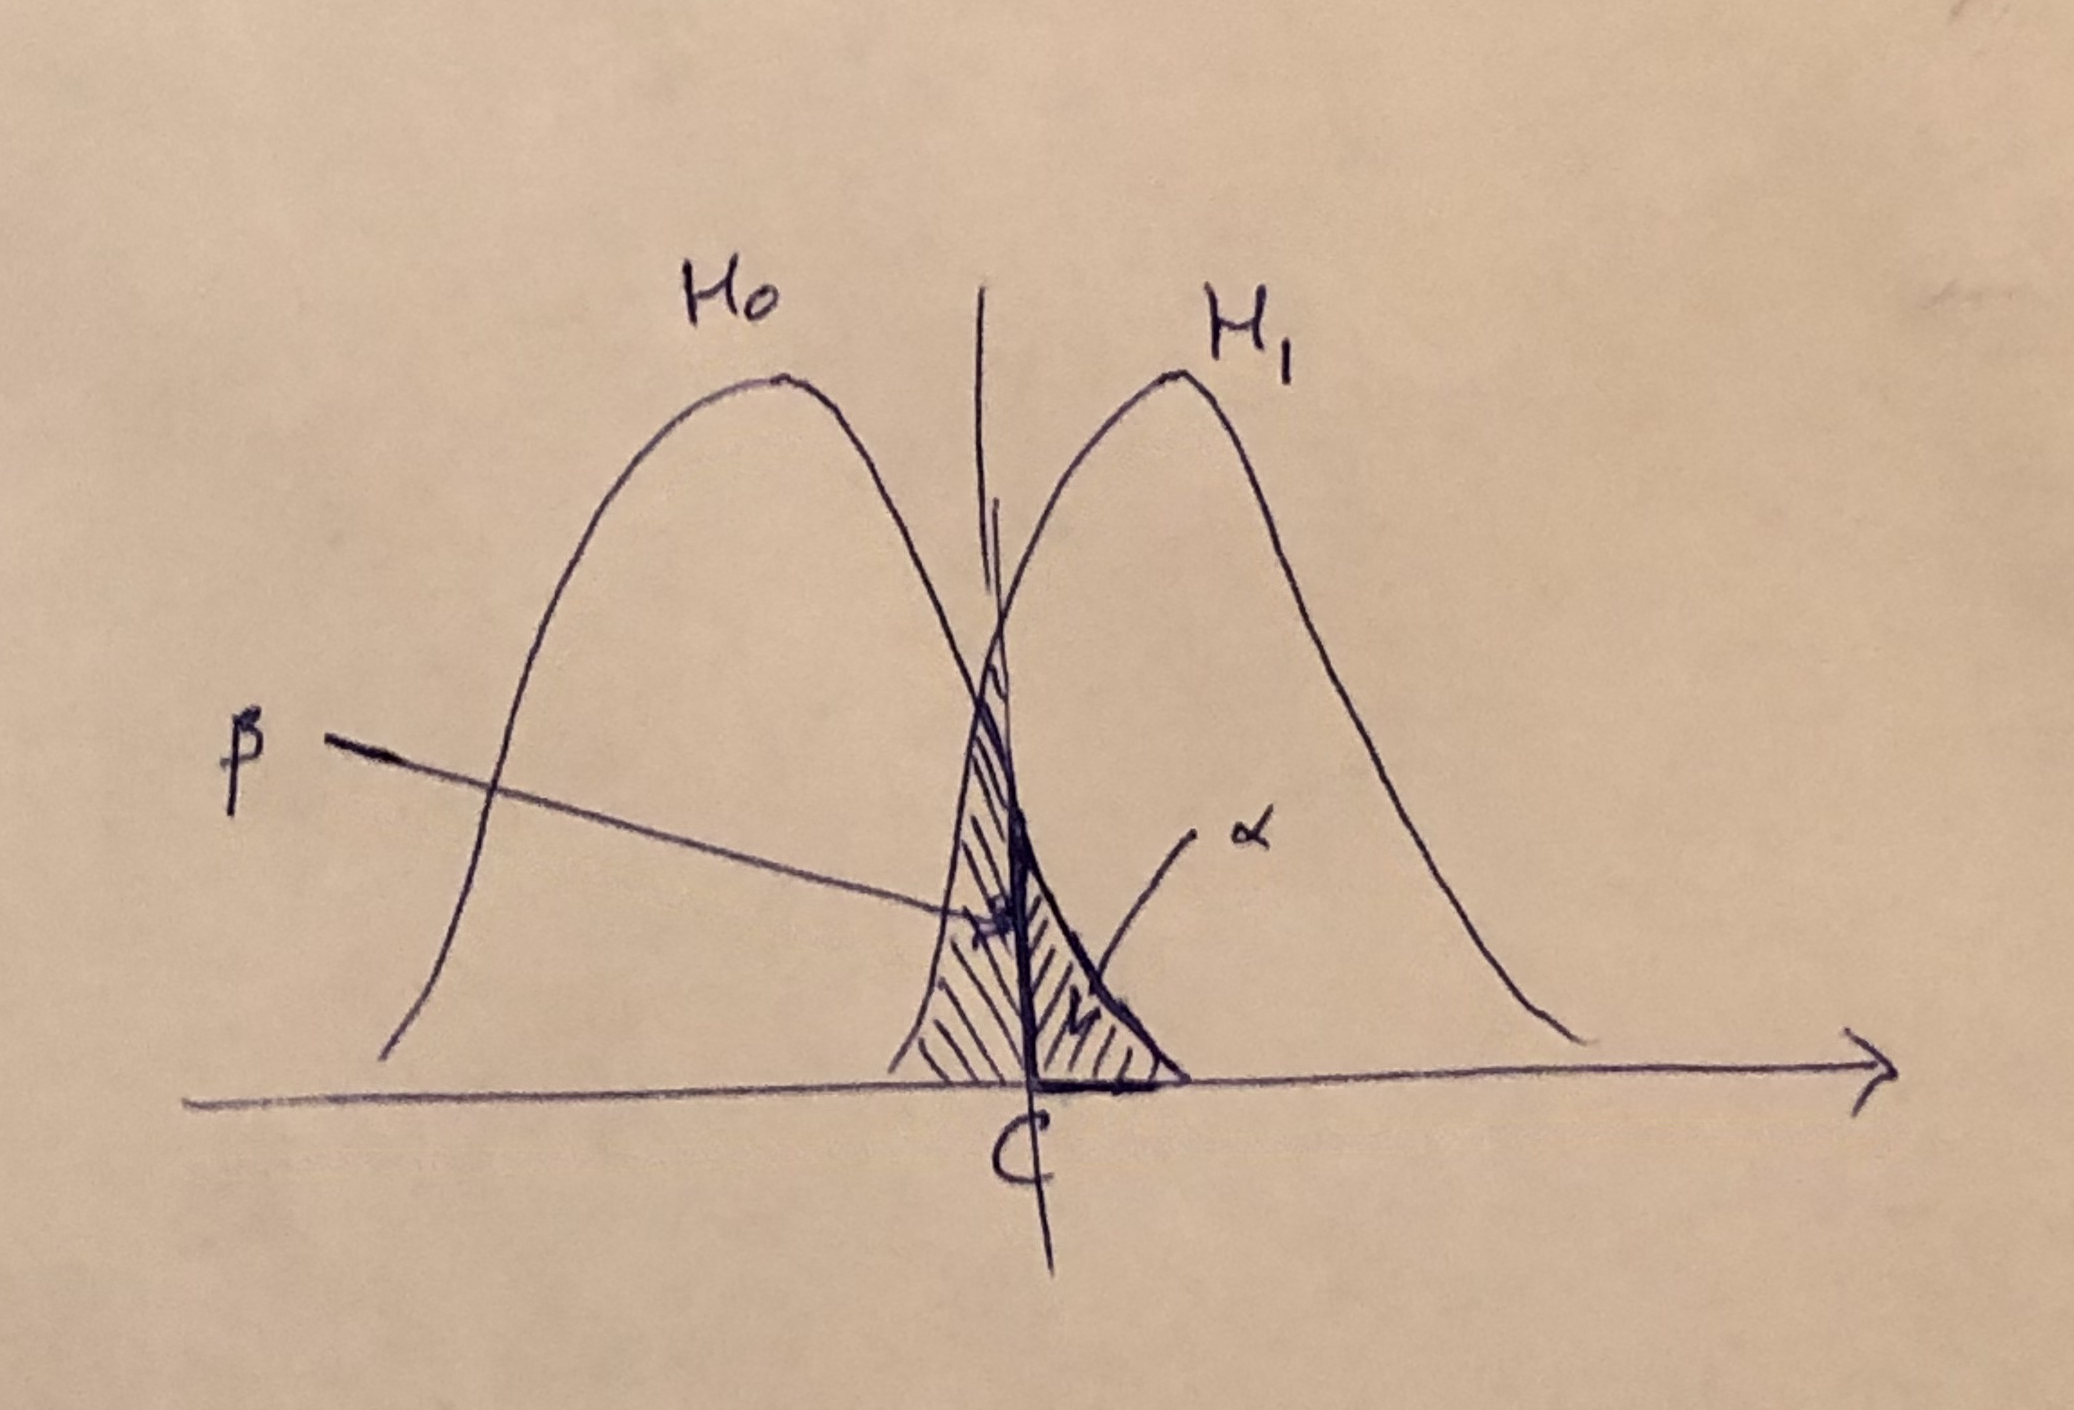 H₀
H₁
β
α
C